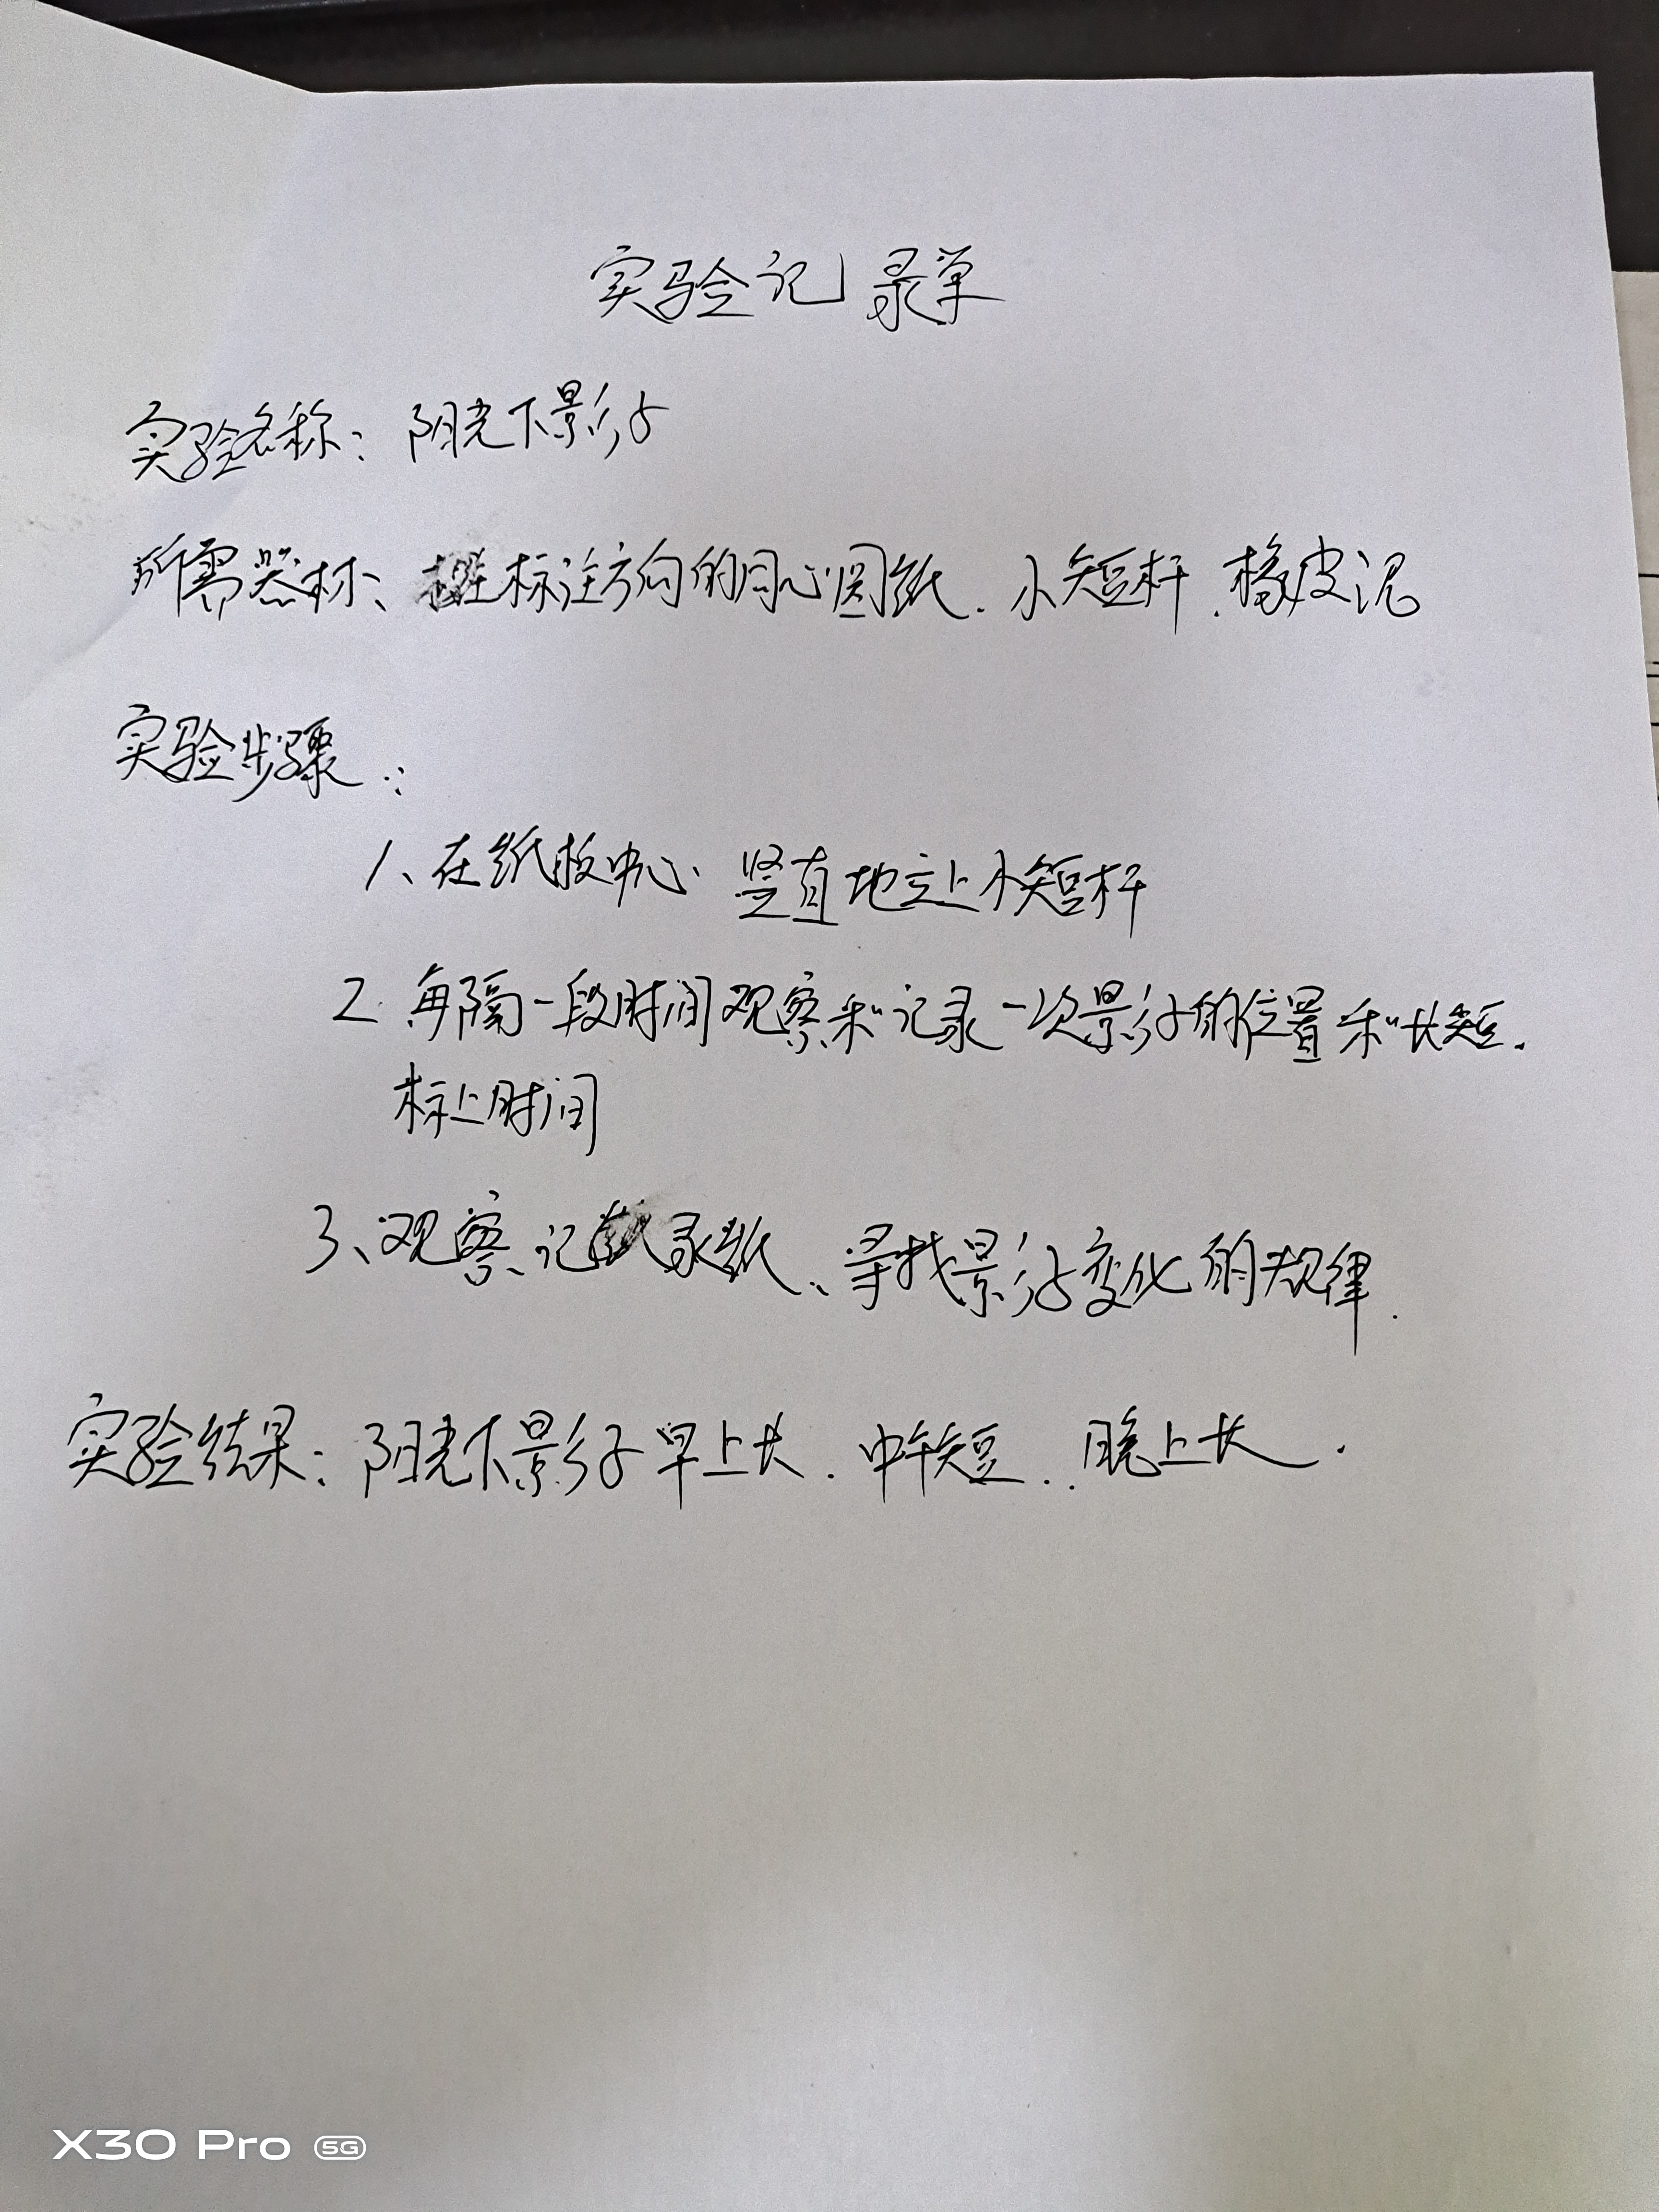 实验记录单
实验名称：阳光下影子
所需器材、标注方向的同心圆纸、小短杆、橡皮泥
实验步骤：
1、在纸板中心、竖直地立上小短杆
2 每隔一段时间观察和记录一次影子的位置和长短.
标上时间
3、观察记录纸、寻找影子变化的规律.
实验结果：阳光下影子早上长.中午短.晚上长.
X30 Pro 5G